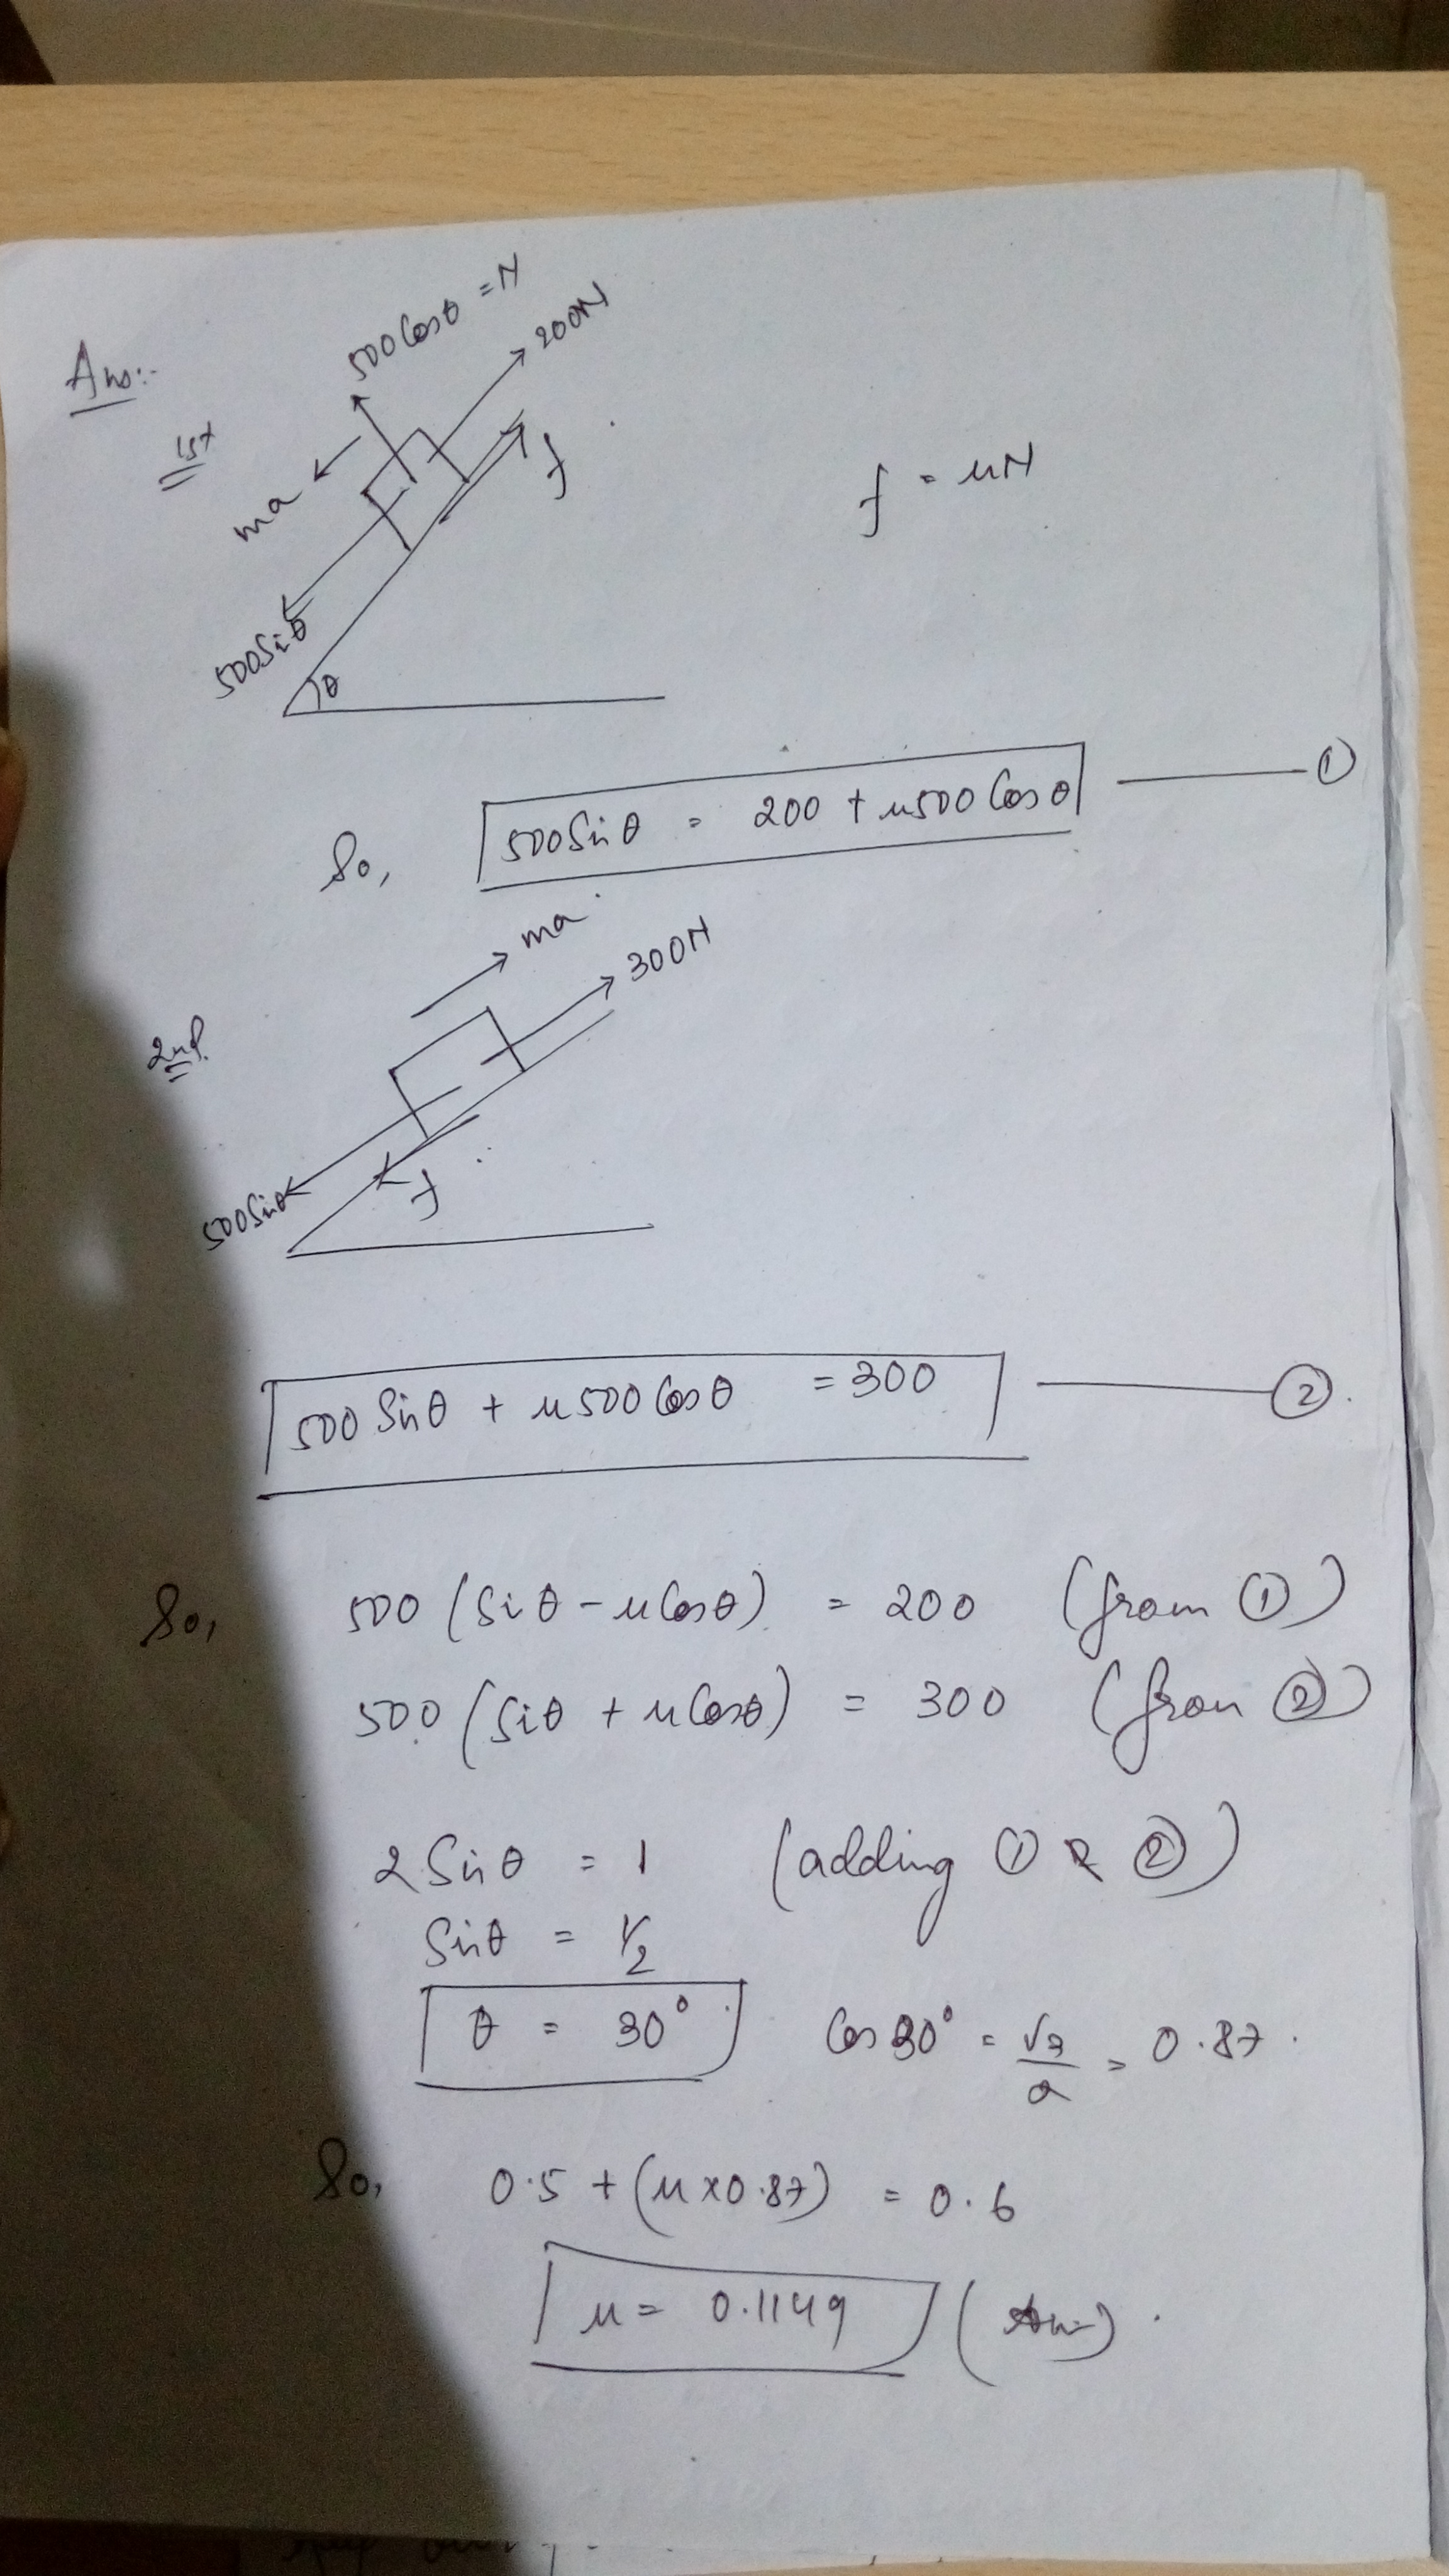 Ans:-
1st
500 Cosθ = N
200N
ma
f
f = μN
500Sinθ
θ
So, 500Sinθ = 200 + μ500 Cosθ ——— ①
2nd.
ma
300N
500Sinθ
f
500 Sinθ + μ500 Cosθ = 300 ——— ②.
So, 500 (Sinθ - μCosθ) = 200 (from ①)
500 (Sinθ + μCosθ) = 300 (from ②)
2 Sinθ = 1 (adding ① & ②)
Sinθ = 1/2
θ = 30° Cos 30° = √3/2 = 0.87.
So, 0.5 + (μ×0.87) = 0.6
μ = 0.1149 (Ans).